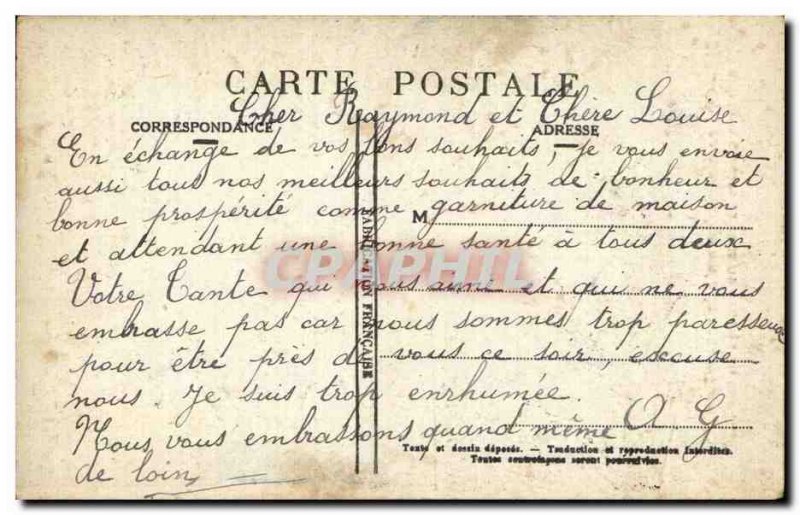 CARTE POSTALE
Cher Raymond et Chère Louise
CORRESPONDANCE
ADRESSE
En échange de vos bons souhaits, je vous envoie
aussi tous nos meilleurs souhaits de bonheur et
bonne prospérité comme garniture de maison
M
et attendant une bonne santé à tous deux
Votre Tante qui vous aime et qui ne vous
embrasse pas car nous sommes trop paresseux
pour être près de vous ce soir, excuse
nous. Je suis trop enrhumée.
Nous vous embrassons quand même O G
de loin
FABRICATION FRANÇAISE
Texte et dessin déposés. — Traduction et reproduction interdites.
Toutes contrefaçons seront poursuivies.
CPAPHIL